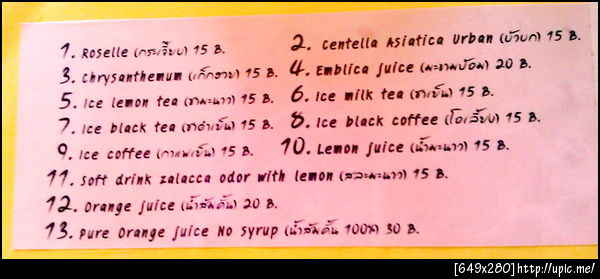 1. Roselle (กระเจี๊ยบ) 15 B. 2. Centella Asiatica Urban (บัวบก) 15 B.
3. Chrysanthemum (เก็กฮวย) 15 B. 4. Emblica juice (มะขามป้อม) 20 B.
5. Ice lemon tea (ชามะนาว) 15 B. 6. Ice milk tea (ชาเย็น) 15 B.
7. Ice black tea (ชาดำเย็น) 15 B. 8. Ice black coffee (โอเลี้ยง) 15 B.
9. Ice coffee (กาแฟเย็น) 15 B. 10. Lemon juice (น้ำมะนาว) 15 B.
11. Soft drink zalacca odor with lemon (สละมะนาว) 15 B.
12. Orange juice (น้ำส้มคั้น) 20 B.
13. Pure Orange juice No Syrup (น้ำส้มคั้น 100%) 30 B.
[649x280]http://upic.me/